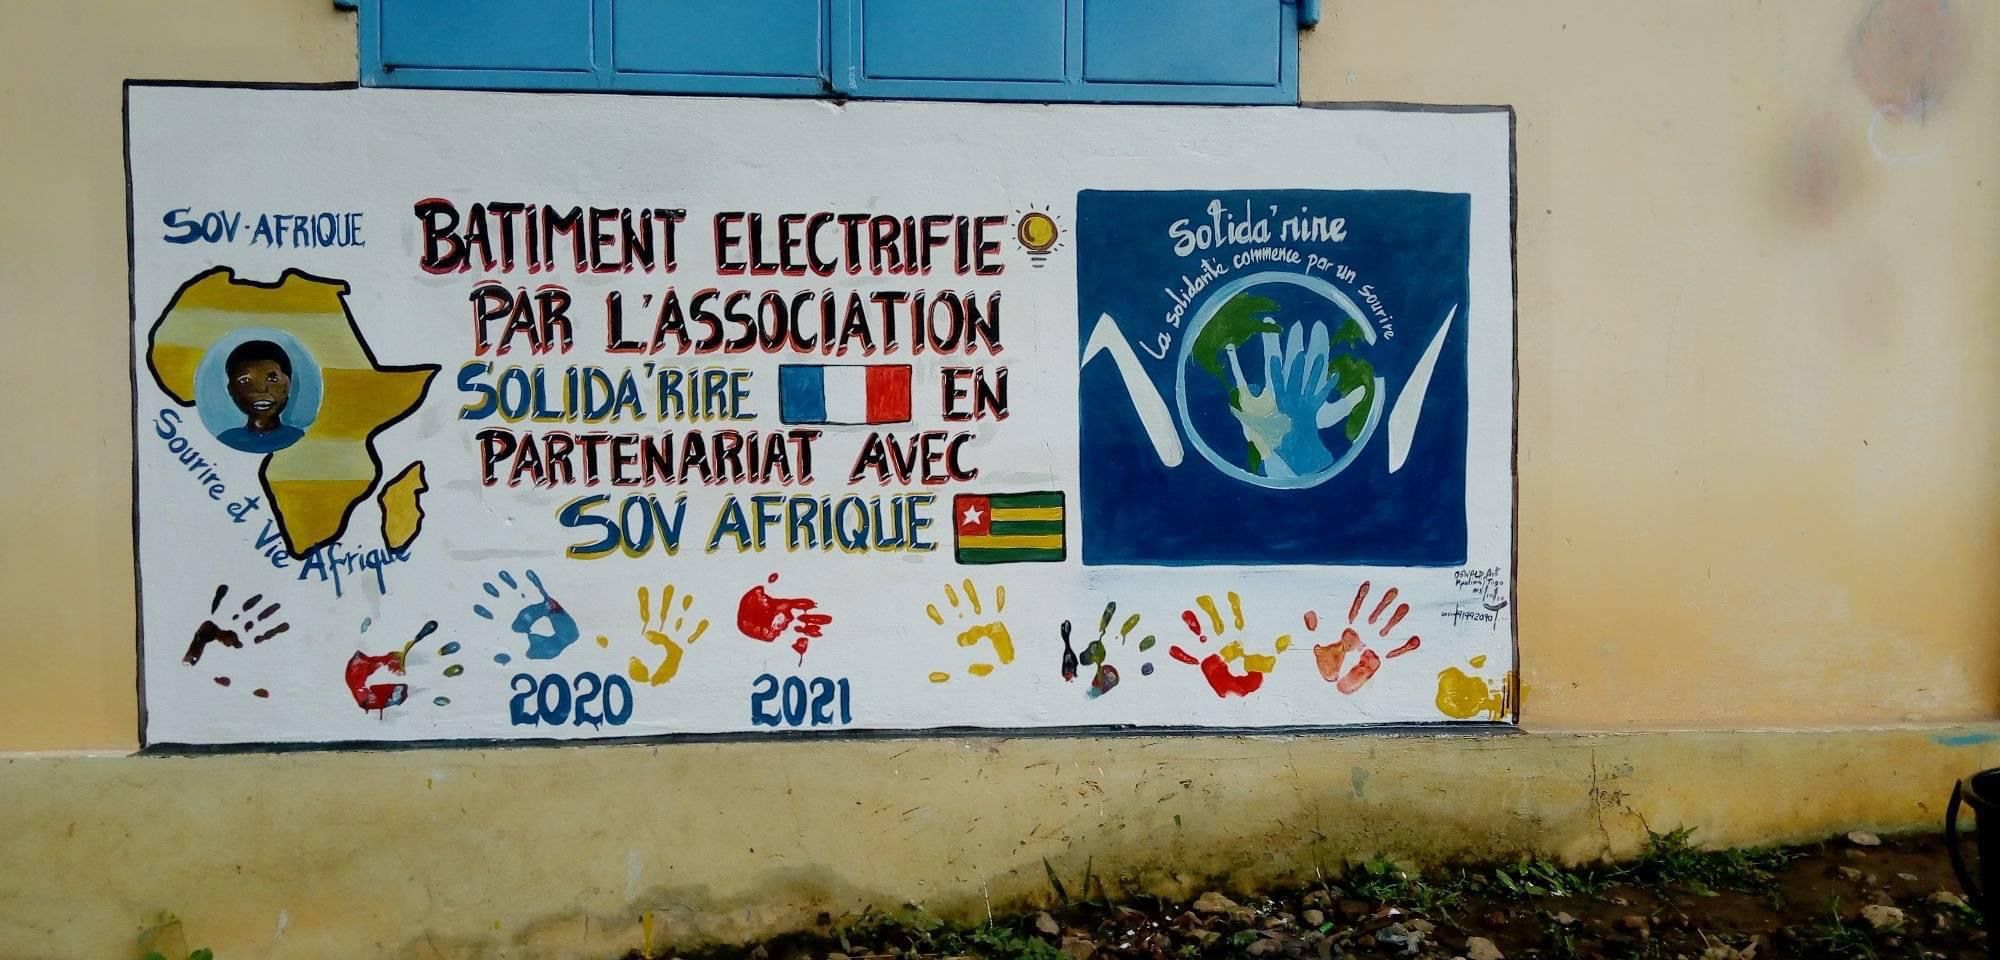 SOV-AFRIQUE
Sourire et Vie Afrique
BATIMENT ELECTRIFIE
PAR L'ASSOCIATION
SOLIDA'RIRE EN
PARTENARIAT AVEC
SOV AFRIQUE
Solida'rire
La solidarité commence par un sourire
2020 2021
OSWALD Art
Kpalimé/Togo